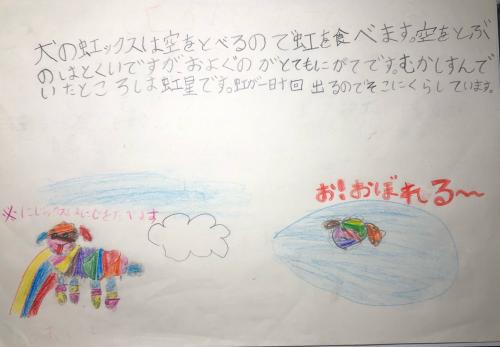 犬の虹ックスは空をとべるので虹を食べます。空をとぶ
のはとくいですが、およぐのがとてもにがてです。むかしすんで
いたところは虹星です。虹が一日十回出るのでそこにくらしています。
お!おぼれる〜
※にじックスはにじをたべます